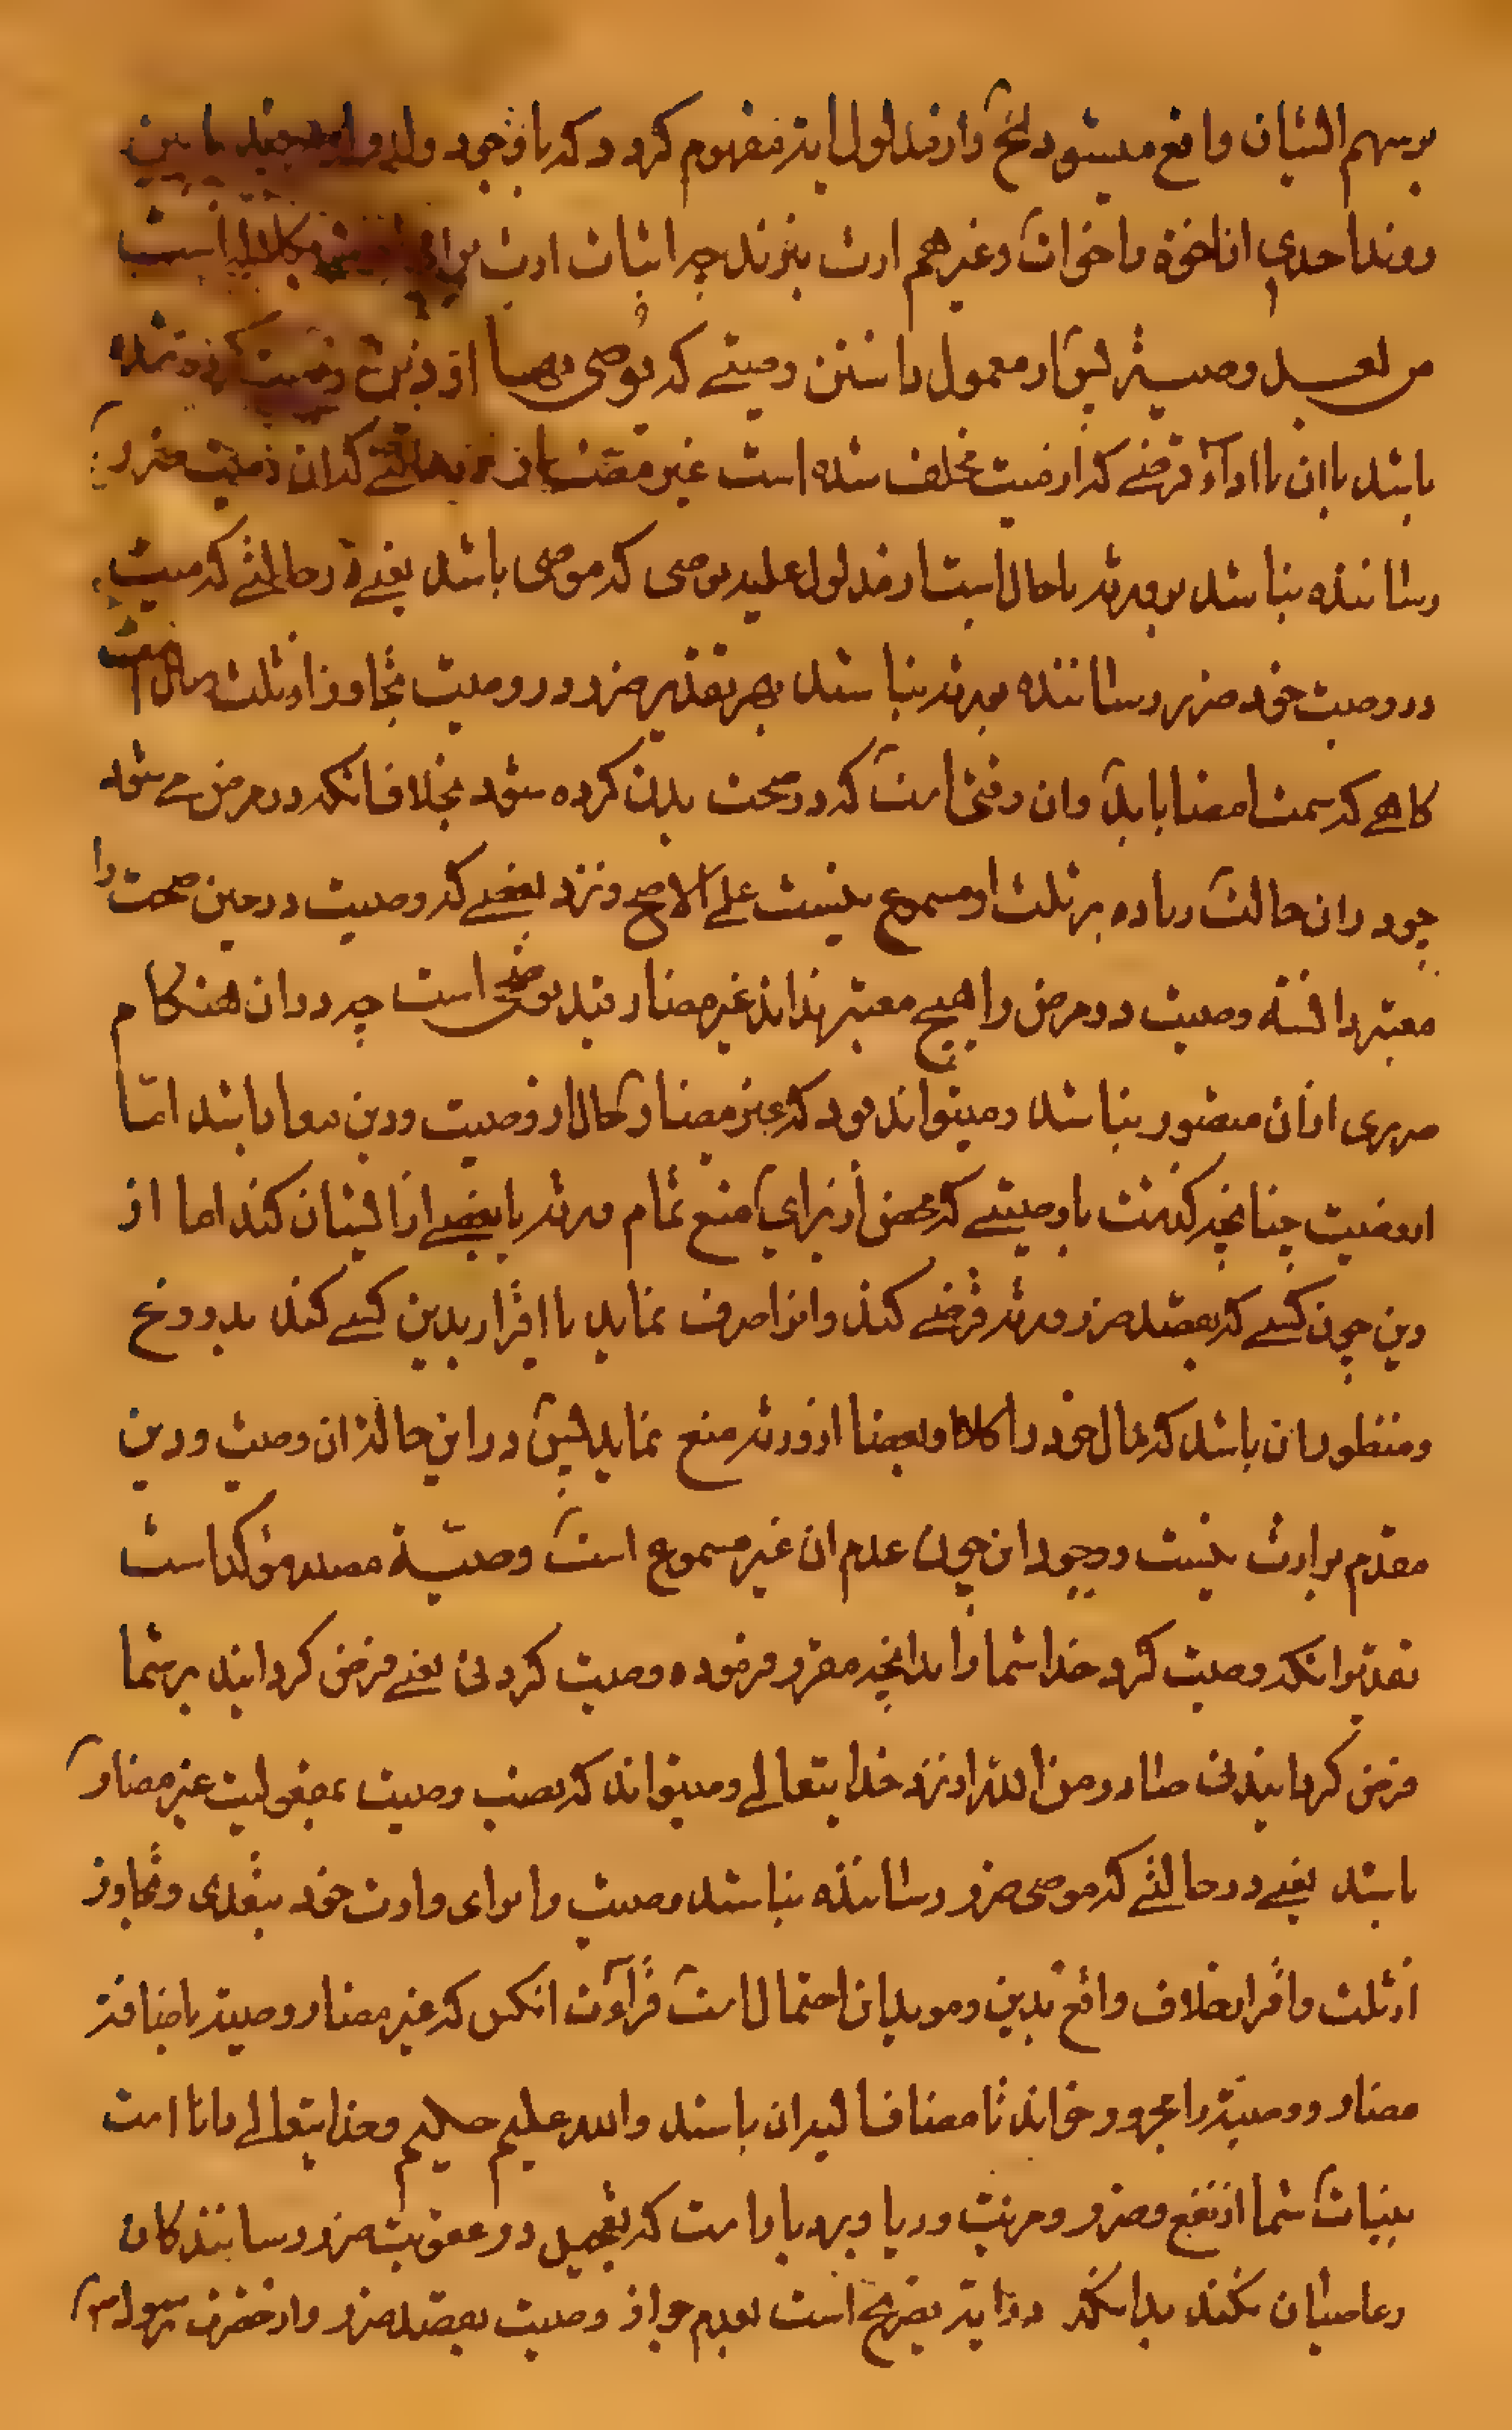 بر سهم ایشان واقع میشود و از مدلول ایه مفهوم کردد که با وجود ولد
روند احدی از اخوة و اخوات و غیرهم ارث نبرند چه اثبات ارث برای است
من بعد وصیة پس از معمول داشتن وصیتی که یوصی بها
باشد باان یا اداء قرضی که از میت مخلف شده است غیر مضار
رساننده نباشد بورثه یا حال است از مدلول علیه یوصی که موصی باشد یعنی در حالتی که میت
در وصیت خود ضرر رساننده بورثه نباشد بهر تقدیر ضرر در وصیت تجاوز از ثلث مال است
کاهی که سمت امضا یابد و ان وقتی است که در صحت بدن کرده شود بخلاف انکه در مرض می شود
چه در ان حالت زیاده بر ثلث او مسموع نیست علی الاصح و نزد بعضی که وصیت در حین صحت را
معتبر دانسته وصیت در مرض را هیچ معتبر نداند غیر مضار قید یوصی است چه در ان هنکام
ضرری از ان متصور نباشد و میتواند بود که غیر مضار حال از وصیت و دین معا باشد اما
از وصیت چنانچه کذشت با وصیتی که محض از برای منع تمام ورثه یا بعضی از ایشان کند اما از
دین چون کسی که بقصد ضرر ورثه قرضی کند و انرا صرف نماید یا اقرار بدین کسی کند بدروغ
و منظور ان باشد که مال خود را کلا او بعضا از ورثه منع نماید پس در این حالت ان وصیت و دین
مقدم بر ارث نیست و وجود ان چون عدم ان غیر مسموع است وصیة مصدر مؤکد است
تقدیر انکه وصیت کرد خدا شما را بدانچه مقرر فرموده وصیت کردنی یعنی فرض کردانید بر شما
فرض کردانیدنی صادر من الله از نزد خدایتعالی و میتواند که نصب وصیت بمفعولیت غیر مضار
باشد یعنی در حالتی که موصی ضرر رساننده نباشد وصیت را برای وارث خود بتعدی و تجاوز
از ثلث و اقرار بخلاف واقع بدین و موید این احتمال است قراءت انکس که غیر مضار وصیة باضافه
مضار و وصیة را مجرور خواند تا مضاف الیه ان باشد والله علیم حلیم و خدایتعالی دانا است
بنیات شما از نفع و ضرر و مرتبت و ریا و بردبار است که تعجیل در عقوبت ضرر رسانندکان
و عاصیان نکند بدانکه در ایه تصریح است بعدم جواز وصیت بقصد ضرر و از حضرت رسول